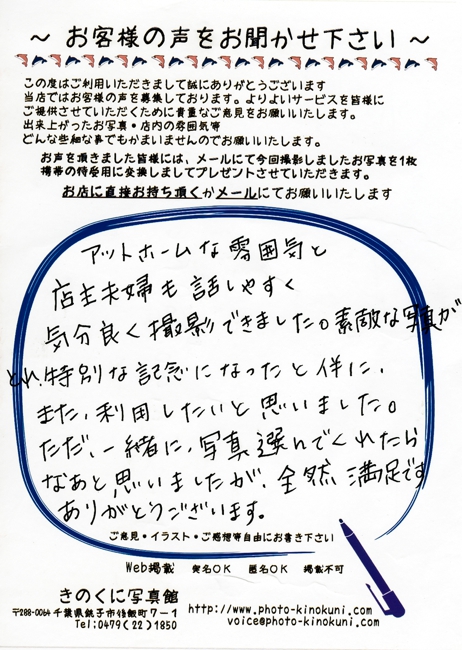 ～ お客様の声をお聞かせ下さい ～
この度はご利用いただきまして誠にありがとうございます
当店ではお客様の声を募集しております。よりよいサービスを皆様に
ご提供させていただくために貴重なご意見をお願いいたします。
出来上がったお写真・店内の雰囲気等
どんな些細な事でもかまいませんのでお願いいたします。
お声を頂きました皆様には、メールにて今回撮影しましたお写真を1枚
携帯の待受用に変換しましてプレゼントさせていただきます。
お店に直接お持ち頂くかメールにてお願いいたします
アットホームな雰囲気と
店主夫婦も話しやすく
気分良く撮影できました。素敵な写真が
とれ、特別な記念になったと伴に、
また、利用したいと思いました。
ただ、一緒に、写真選んでくれたら
なあと思いましたが、全然、満足です
ありがとうございます。
ご意見・イラスト・ご感想等自由にお書き下さい
Web掲載 実名OK 匿名OK 掲載不可
きのくに写真館
〒288-0064 千葉県銚子市後飯町7-1
Tel:0479(22)1850
http://www.photo-kinokuni.com/
voice@photo-kinokuni.com